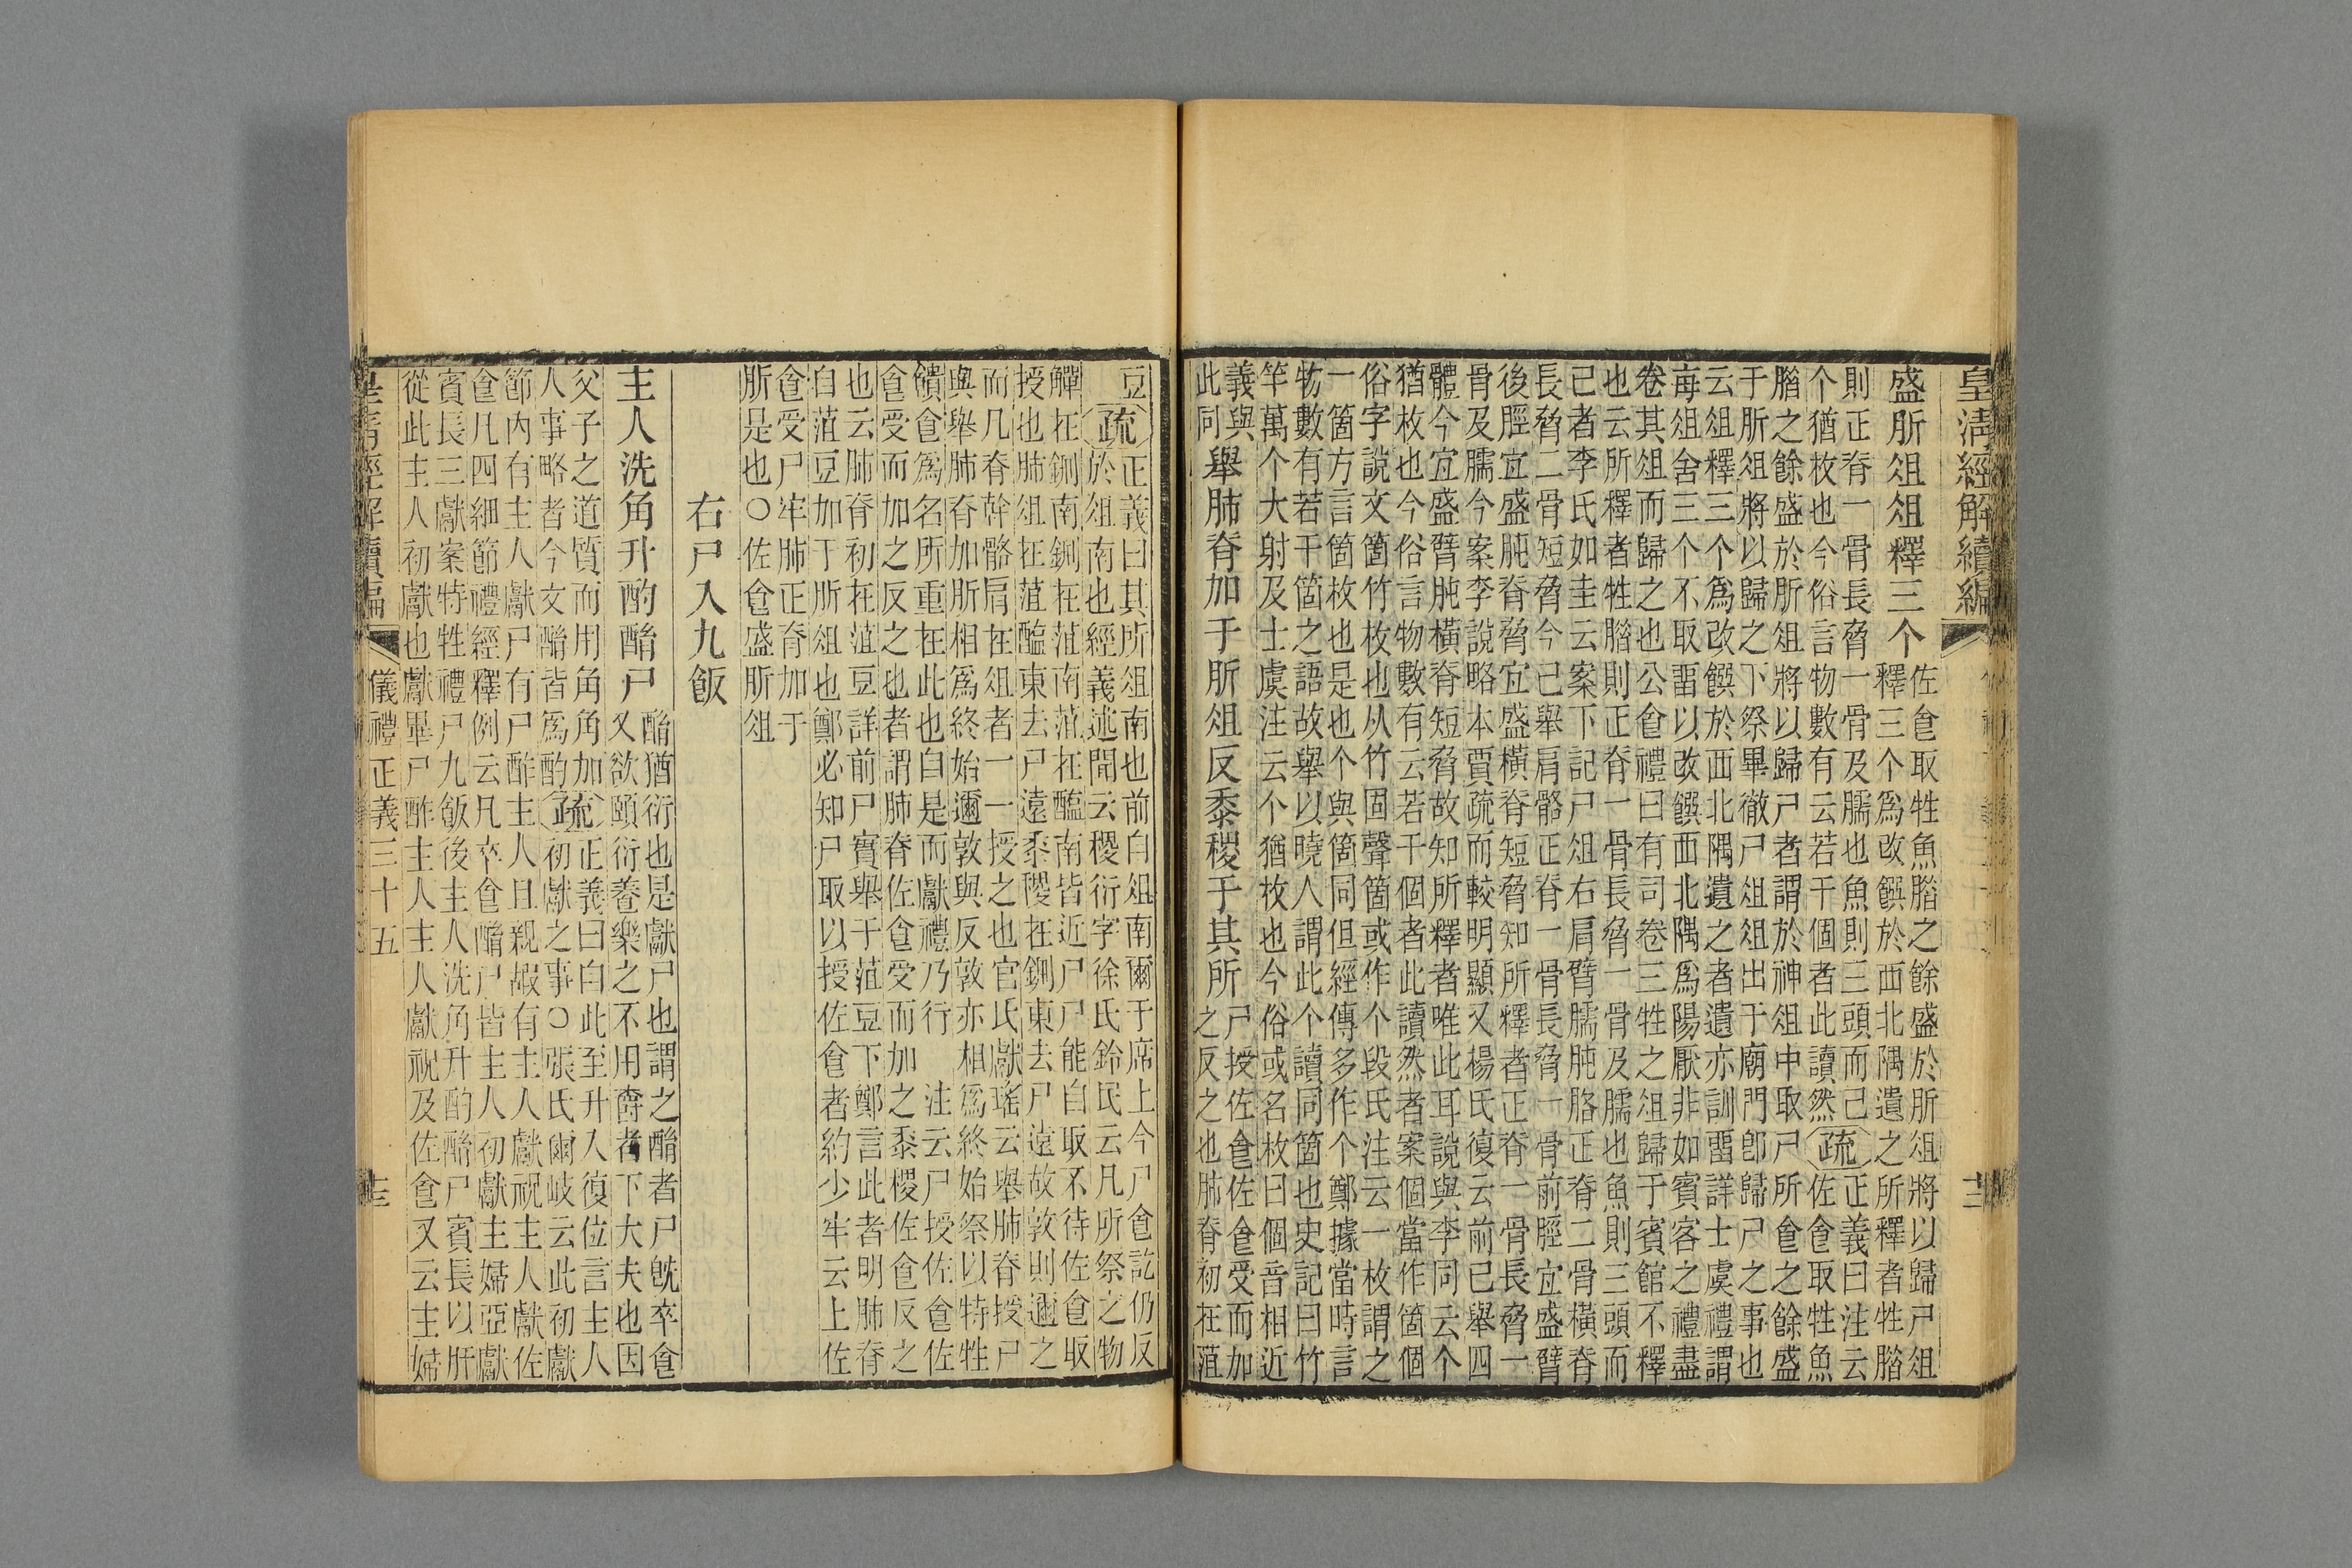 皇淸經解續編
盛肵俎俎釋三个
佐食取牲魚腊之餘盛於肵俎將以歸尸俎
釋三个爲改饌於西北隅遺之所釋者牲腊
則正脊一骨長脅一骨及臑也魚則三頭而已
个猶枚也今俗言物數有云若干個者此讀然
疏
正義曰注云
佐食取牲魚
腊之餘盛於肵俎將以歸尸者謂於神俎中取尸所食之餘盛
于肵俎將以歸之下祭畢徹尸俎俎出于廟門卽歸尸之事也
云俎釋三个爲改饌於西北隅遺之者遺亦訓畱詳士虞禮謂
每俎舍三个不取畱以改饌西北隅爲陽厭非如賓客之禮盡
卷其俎而歸之也公食禮曰有司卷三牲之俎歸于賓館不釋
也云所釋者牲腊則正脊一骨長脅一骨及臑也魚則三頭而
已者李氏如圭云案下記尸俎右肩臂臑肫胳正脊二骨橫脊
長脅二骨短脅今已舉肩骼正脊一骨長脅一骨前脛宜盛臂
後脛宜盛肫脊脅宜盛橫脊短脅知所釋者正脊一骨長脅一
骨及臑今案李說略本賈疏而較明顯又楊氏復云前已舉四
體今宜盛臂肫橫脊短脅故知所釋者唯此耳說與李同云个
猶枚也今俗言物數有云若干個者此讀然者案個當作箇個
俗字說文箇竹枚也从竹固聲箇或作个段氏注云一枚謂之
一箇方言箇枚也是也个與箇同但經傳多作个鄭據當時言
物數有若干箇之語故舉以曉人謂此个讀同箇也史記曰竹
竿萬个大射及士虞注云个猶枚也今俗或名枚曰個音相近
義與
此同
舉肺脊加于肵俎反黍稷于其所
尸授佐食佐食受而加
之反之也肺脊初在菹
豆
疏
正義曰其所俎南也前自俎南爾于席上今尸食訖仍反
於俎南也經義述聞云稷衍字徐氏鈴民云凡所祭之物
觶在鉶南鉶在菹南菹在醢南皆近尸尸能自取不待佐食取
授也肺俎在菹醢東去尸遠黍稷在鉶東去尸遠故敦則邇之
而几脊幹骼肩在俎者一一授之也官氏獻瑤云舉肺脊授尸
與舉肺脊加肵相爲終始邇敦與反敦亦相爲終始祭以特牲
饋食爲名所重在此也自是而獻禮乃行 注云尸授佐食佐
食受而加之反之也者謂肺脊佐食受而加之黍稷佐食反之
也云肺脊初在菹豆詳前尸實舉于菹豆下鄭言此者明肺脊
自菹豆加于肵俎也鄭必知尸取以授佐食者約少牢云上佐
食受尸牢肺正脊加于
肵是也○佐食盛肵俎
右尸入九飯
主人洗角升酌酳尸
酳猶衍也是獻尸也謂之酳者尸旣卒食
又欲頤衍養樂之不用爵者下大夫也因
父子之道質而用角角加
人事略者今文酳皆爲酌
疏
正義曰自此至升入復位言主人
初獻之事○張氏爾岐云此初獻
節內有主人獻尸有尸酢主人且親嘏有主人獻祝主人獻佐
食凡四細節禮經釋例云凡卒食酳尸皆主人初獻主婦亞獻
賓長三獻案特牲禮尸九飯後主人洗角升酌酳尸賓長以肝
從此主人初獻也獻畢尸酢主人主人獻祝及佐食又云主婦
皇淸經解續編
儀禮正義三十五